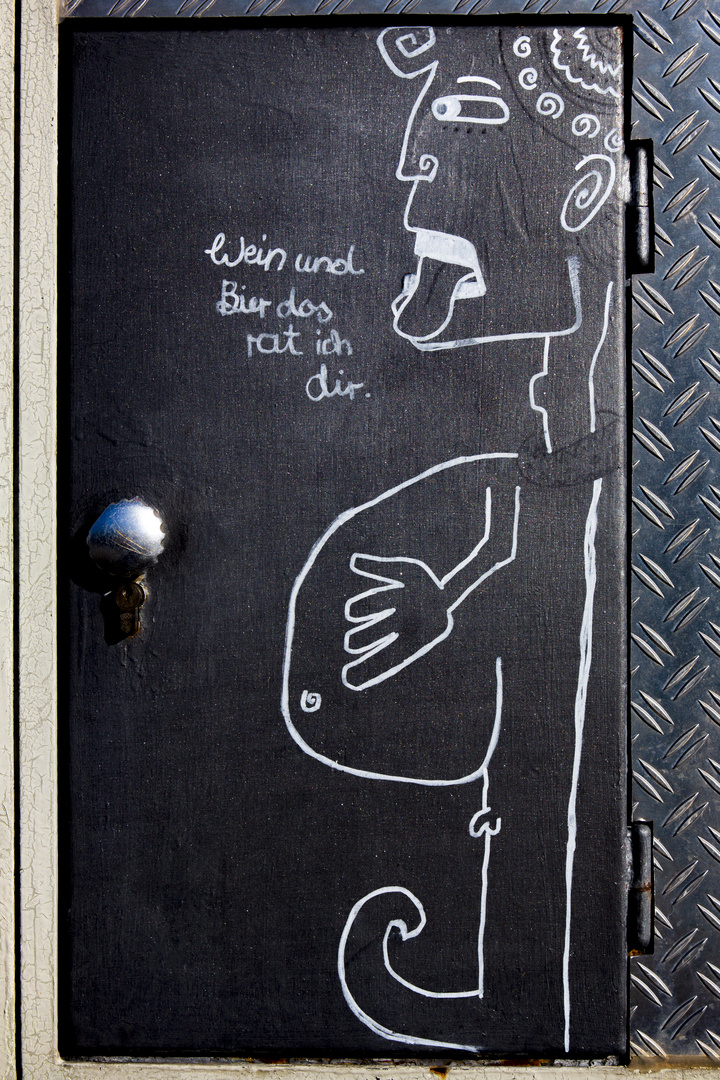 Wein und
Bier das
rat ich
dir.